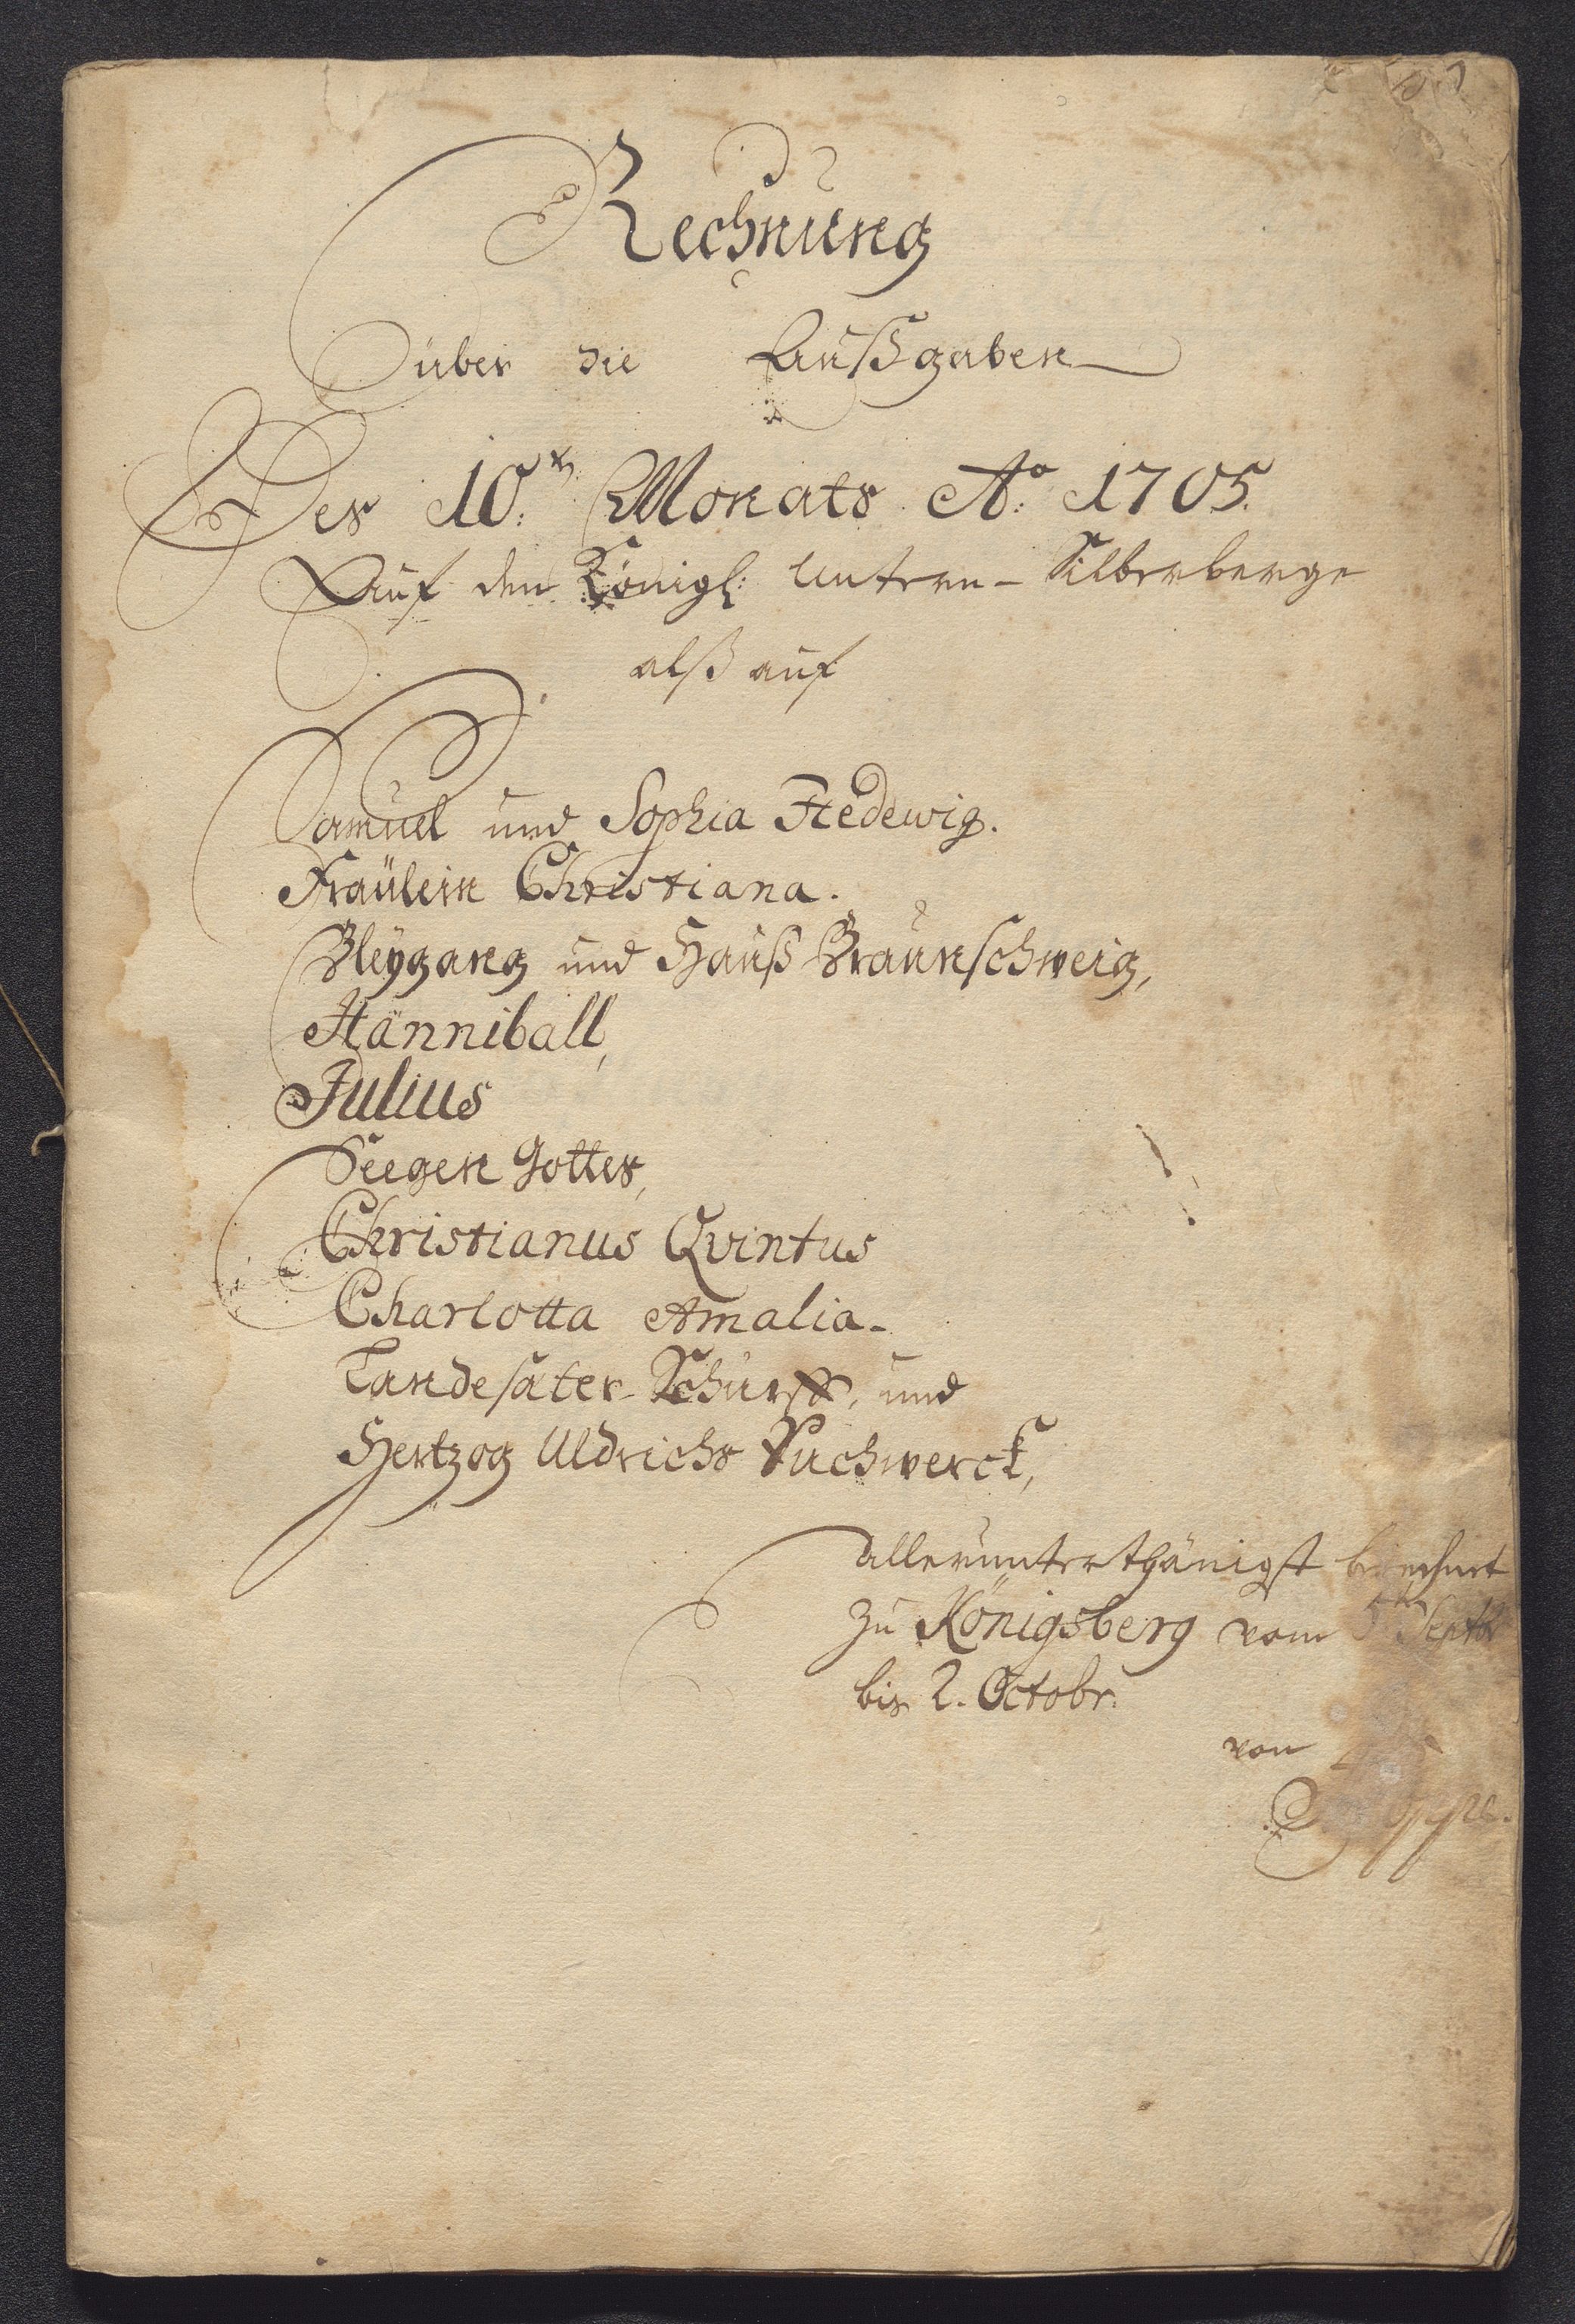 Rechnung
über die Außgaben
Des 10.n Monats Ao. 1705.
Auf den Königl: Untern-Silberberge
alß auf
Samuel und Sophia Hedewig.
Fraülein Christiana.
Bleygang und Hauß Braunschweig,
Hänniball,
Julius
Seegen Gottes,
Christianus Qvintus
Charlotta Amalia.
Landesäter-Schurff, und
Hertzog Uldrichs Puchwerck,
allerunterthänigst berechnet
zu Königsberg vom 5ten Septbr
bis 2. Octobr.
von